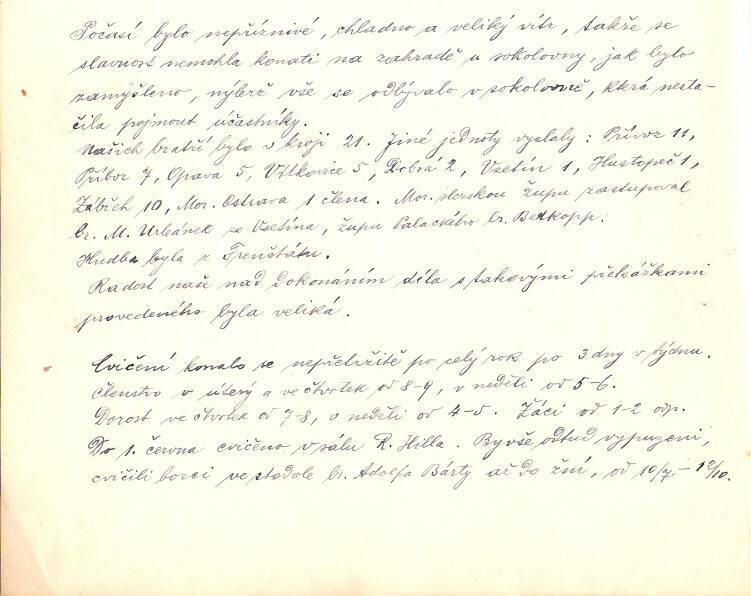 Počasí bylo nepříznivé, chladno a veliký vítr, takže se
slavnost nemohla konati na zahradě u sokolovny, jak bylo
zamýšleno, nýbrž vše se odbývalo v sokolovně, která nesta-
čila pojmout účastníky.
Našich bratří bylo v kroji 21. Jiné jednoty vyslaly: Přívoz 11,
Příbor 7, Opava 5, Vítkovice 5, Dobrá 2, Vsetín 1, Hustopeč 1,
Zábřeh 10, Mor. Ostrava 1 člena. Mor. slezskou župu zastupoval
br. M. Urbánek ze Vsetína, župu Palackého br. Betkopp.
Hudba byla z Frenštátu.
Radost naše nad dokonáním díla s takovými překážkami
provedeného byla veliká.
Cvičení konalo se nepřetržitě po celý rok po 3 dny v týdnu.
Členstvo v úterý a ve čtvrtek od 8-9, v neděli od 5-6.
Dorost ve čtvrtek od 7-8, v neděli od 4-5. Žáci od 1-2 odp.
Do 1. června cvičeno v sálu R. Hilla. Byvše odtud vypuzeni,
cvičili borci ve stodole br. Adolfa Bárty až do žní, od 10/7. - 12/10.